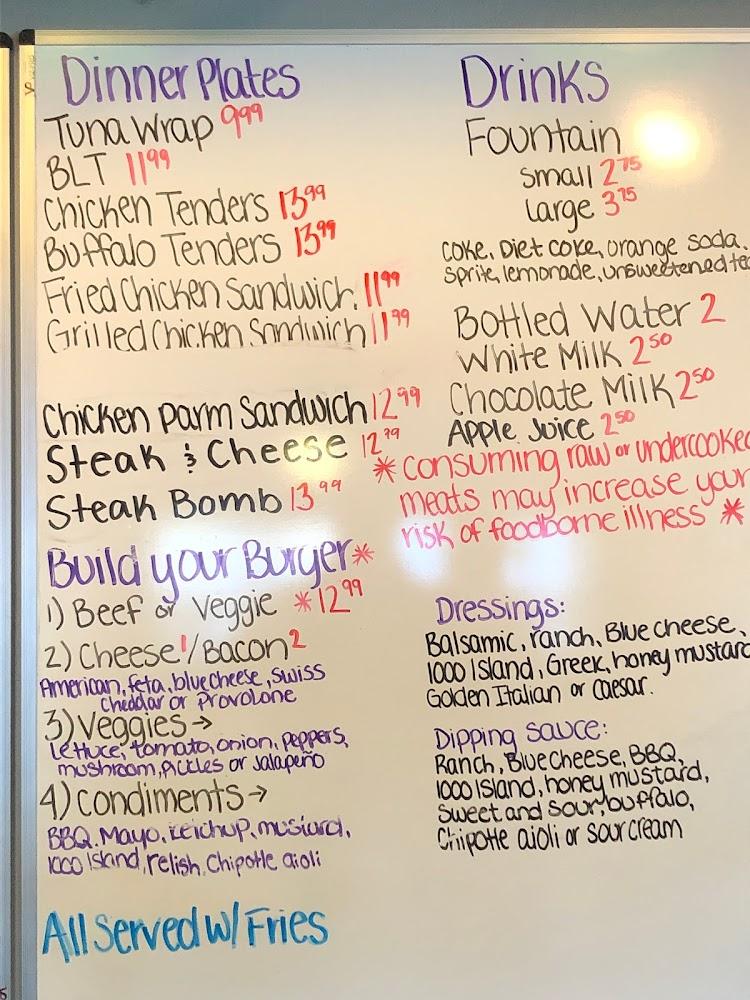 Dinner Plates
Tuna Wrap 9⁹⁹
BLT 11⁹⁹
Chicken Tenders 13⁹⁹
Buffalo Tenders 13⁹⁹
Fried Chicken Sandwich 11⁹⁹
Grilled Chicken Sandwich 11⁹⁹
Chicken Parm Sandwich 12⁹⁹
Steak & Cheese 12⁹⁹
Steak Bomb 13⁹⁹
Build your Burger*
1) Beef or Veggie *12⁹⁹
2) Cheese¹/Bacon²
American, feta, bluecheese, swiss
cheddar or Provolone
3) Veggies→
Lettuce, tomato, onion, peppers,
mushroom, pickles or Jalapeño
4) Condiments→
BBQ, Mayo, ketchup, mustard,
1000 Island, relish, Chipotle aioli
All Served w/ Fries
Drinks
Fountain
Small 2⁷⁵
Large 3⁷⁵
Coke, Diet Coke, orange soda,
Sprite, lemonade, unsweetened tea
Bottled Water 2
White Milk 2⁵⁰
Chocolate Milk 2⁵⁰
Apple Juice 2⁵⁰
*Consuming raw or undercooked
meats may increase your
risk of foodborne illness *
Dressings:
Balsamic, ranch, Blue cheese,
1000 Island, Greek, honey mustard
Golden Italian or Caesar.
Dipping sauce:
Ranch, Blue Cheese, BBQ,
1000 Island, honey mustard,
Sweet and sour, buffalo,
Chipotle aioli or sour cream